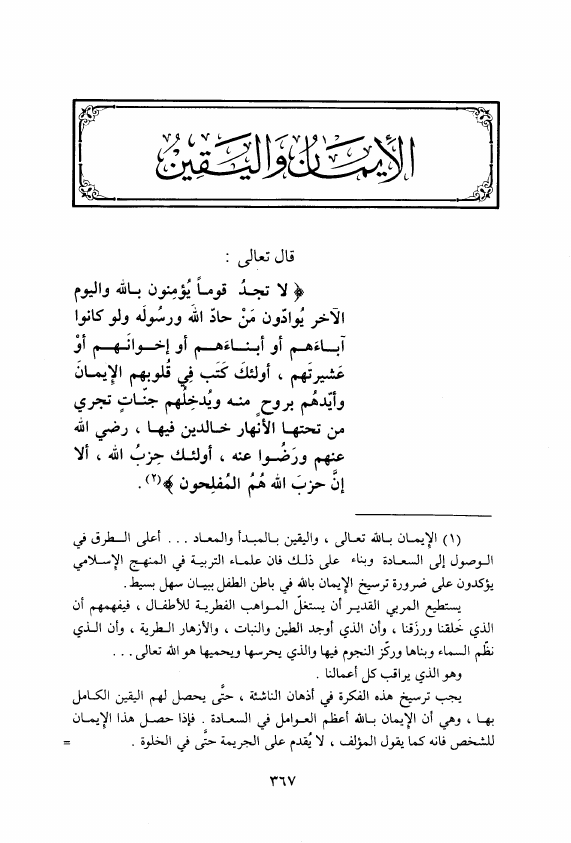 الإيمَانُ وَاليَقِينُ
قال تعالى :
﴿ لا تجدُ قوماً يُؤمِنون بالله واليوم
الآخر يُوادّون مَنْ حادّ اللهَ ورسُولَه ولو كانوا
آباءَهم أو أبناءَهم أو إخوانَهم أوْ
عَشيرتَهم ، أولئكَ كَتَب فِي قُلوبهم الإيمَانَ
وأيّدهُم بروحٍ منه ويُدخِلُهم جنّاتٍ تجري
من تحتها الأنهار خالدين فيها ، رضي الله
عنهم ورَضُوا عنه ، أولئك حِزبُ الله ، ألا
إنَّ حزبَ الله هُمُ المُفلِحون ﴾(٢) .
(١) الإيمان بالله تعالى ، واليقين بالمبدأ والمعاد ... أعلى الطرق في
الوصول إلى السعادة وبناء على ذلك فان علماء التربية في المنهج الإسلامي
يؤكدون على ضرورة ترسيخ الإيمان بالله في باطن الطفل ببيان سهل بسيط .
يستطيع المربي القدير أن يستغلّ المواهب الفطرية للأطفال ، فيفهمهم أن
الذي خَلقنا ورزَقنا ، وأن الذي أوجد الطين والنبات ، والأزهار الطرية ، وأن الذي
نظّم السماء وبناها وركّز النجوم فيها والذي يحرسها ويحميها هو الله تعالى ...
وهو الذي يراقب كل أعمالنا .
يجب ترسيخ هذه الفكرة في أذهان الناشئة ، حتَّى يحصل لهم اليقين الكامل
بها ، وهي أن الإيمان بالله أعظم العوامل في السعادة . فإذا حصل هذا الإيمان
للشخص فانه كما يقول المؤلف ، لا يُقدم على الجريمة حتَّى في الخلوة . =
٣٦٧